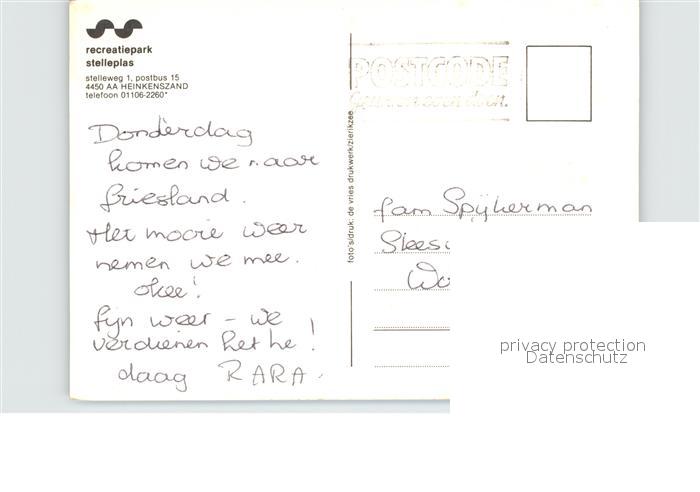 recreatiepark
stelleplas
stelleweg 1, postbus 15
4450 AA HEINKENSZAND
telefoon 01106-2260*
Donderdag
komen we naar
friesland.
Het mooie weer
nemen we mee.
okee!
fijn weer - we
verdienen het he!
daag RARA.
foto's/druk: de vries drukwerk/zierikzee
POSTCODE
fam Spijkerman
privacy protection
Datenschutz